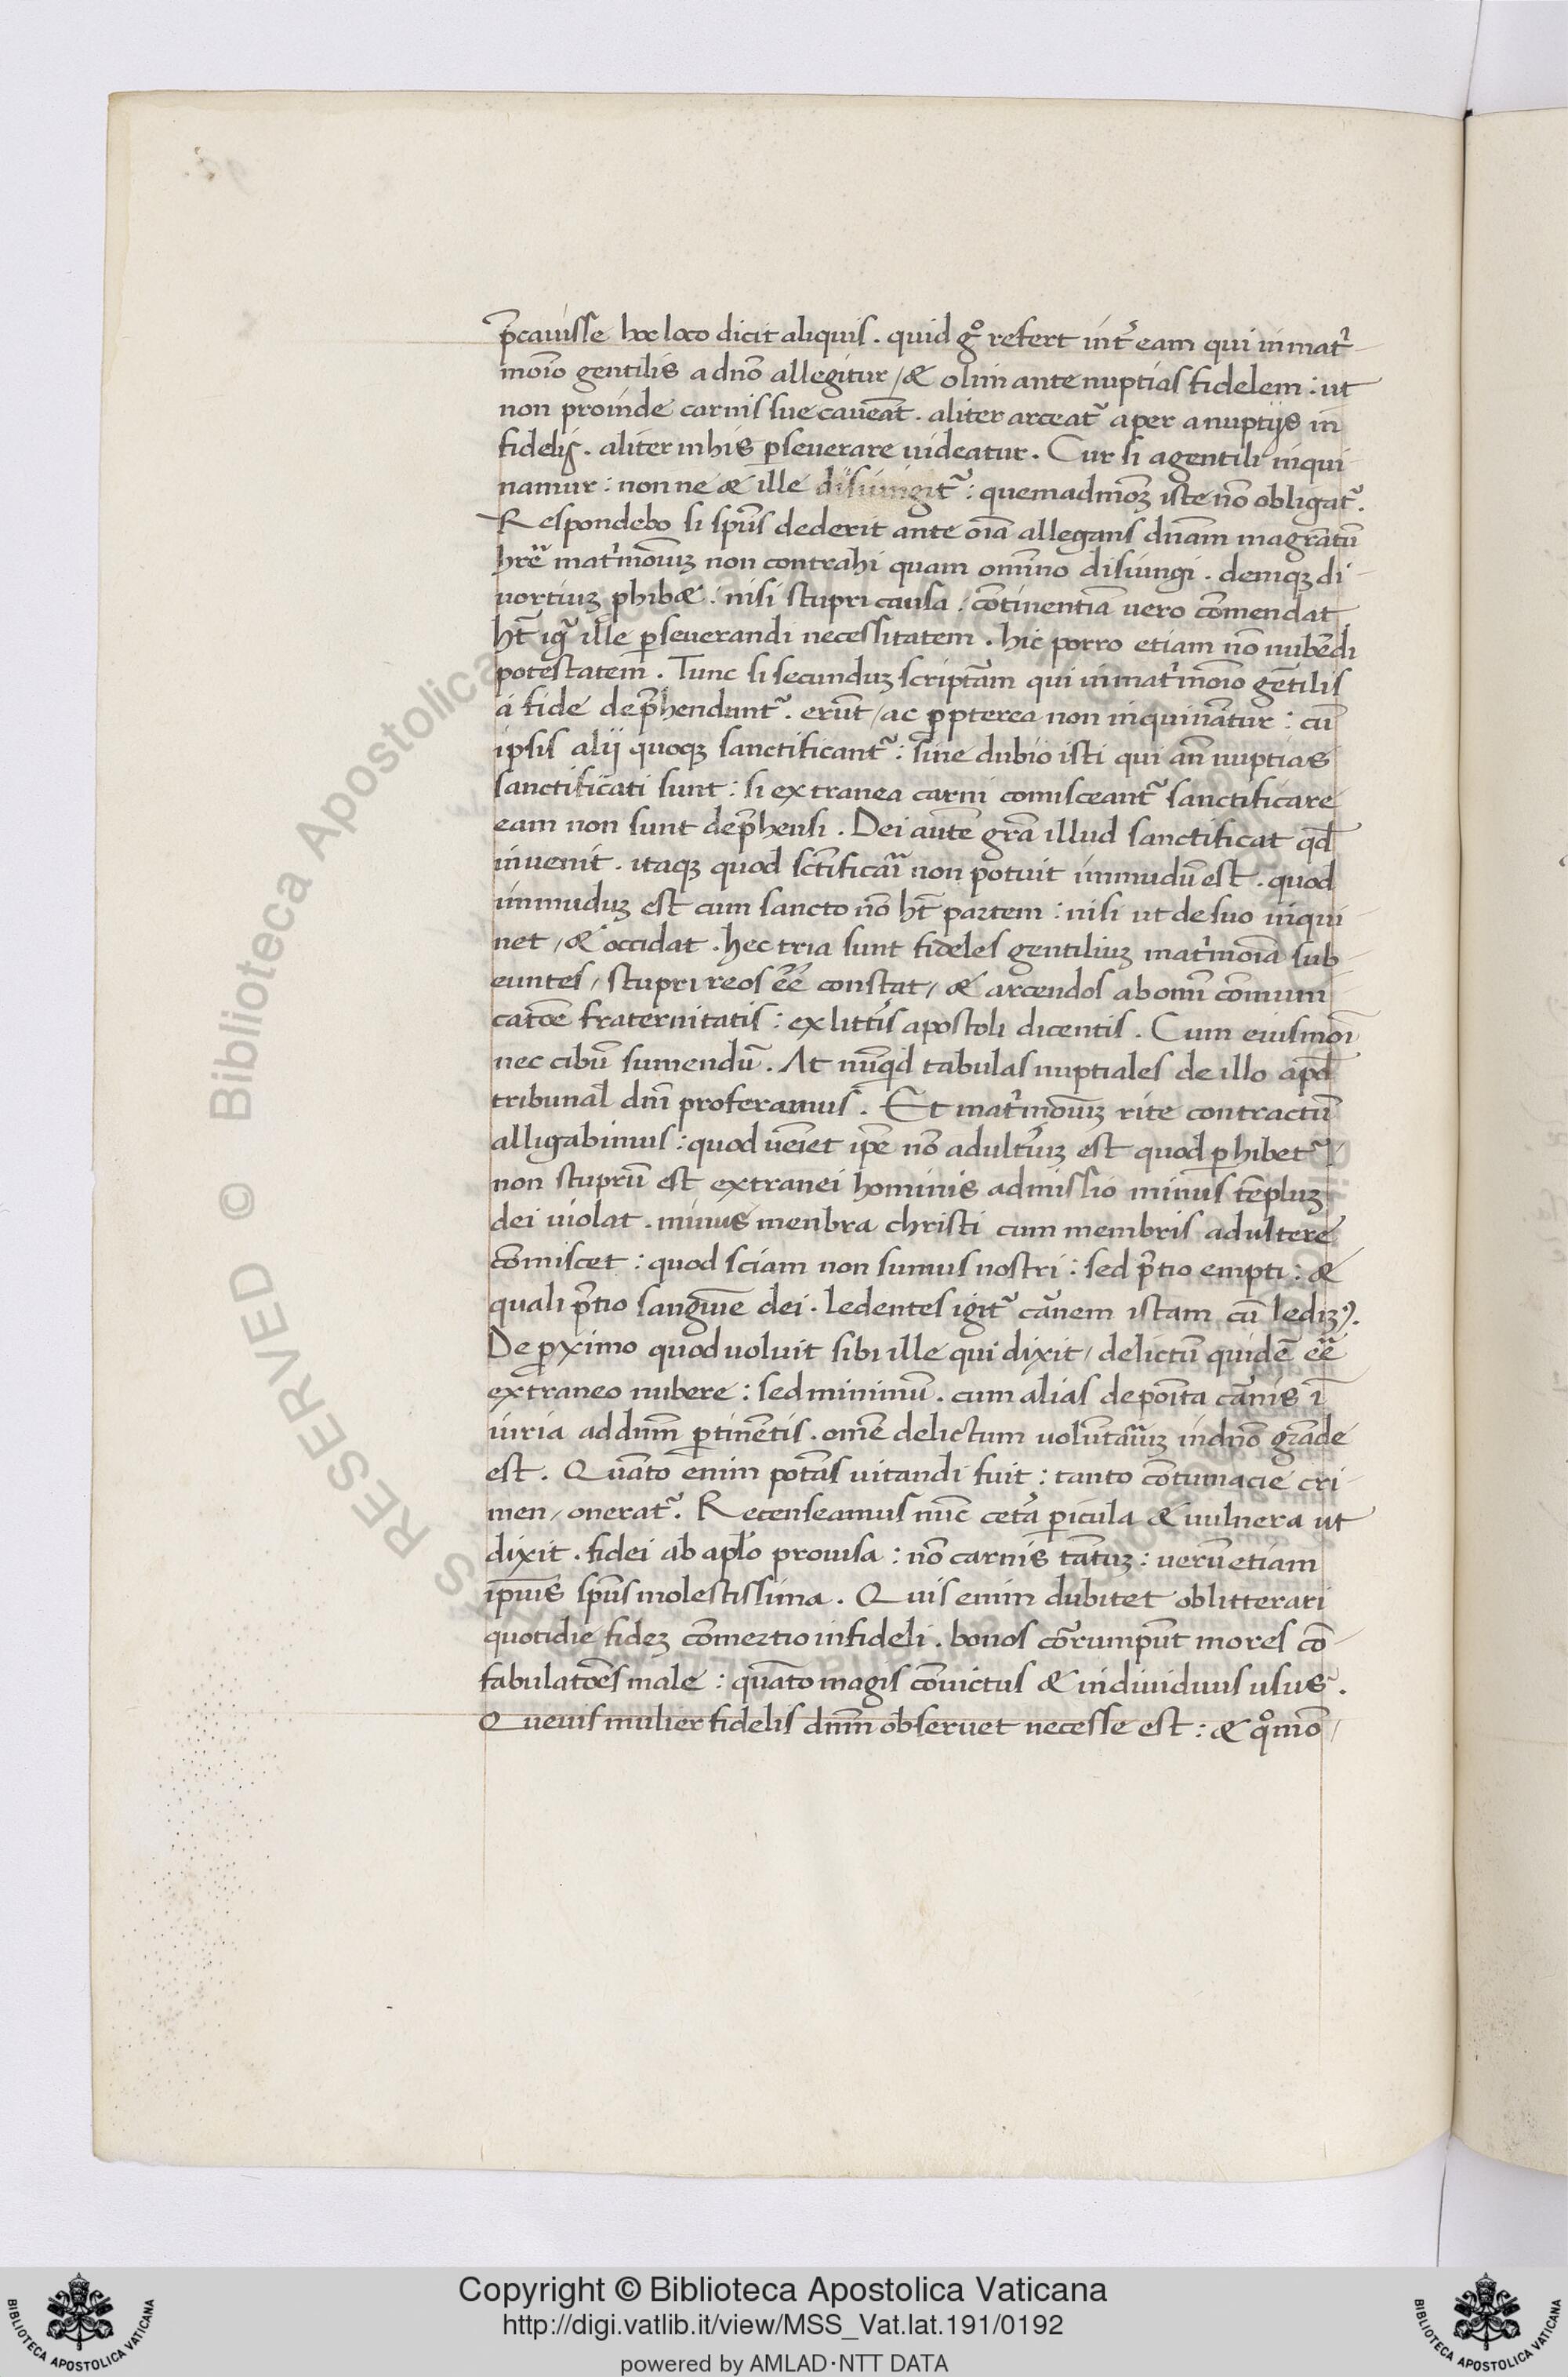 p̄cauisse hoc loco dicit aliquis. quid gͦ refert int᷑ eam qui in mat᷑
moīo gentilis a dn̄o allegitur / & olim ante nuptias fidelem : ut
non proinde carni sue caueāt. aliter arceat᷑ aper a nuptijs in
fidelis. aliter in his ꝑseuerare uideatur. Cur si a gentili inqui
namur : non ne & ille disiungit᷑ : quemadmoꝫ iste nō obligat᷑.
Respondebo si spūs dederit ante oīa allegans dn̄am magratū
hr̄e mat᷑moīuꝫ non contrahi quam omīno disiungi. deniqꝫ di
uortiuꝫ ꝓhib& : nisi stupri causa. cōtinentiā uero cōmendat
ht̄ ig᷑ ille ꝑseuerandi necessitatem. hic porro etiam nō nubēdi
potestatem. Tunc si secunduꝫ scriptā qui in mat᷑moīo gētilis
a fide dep̄hendunt᷑. erūt / ac ꝓpterea non inquināntur : cū
ipsis alij quoqꝫ sanctificant᷑ : sine dubio isti qui an̄ nuptias
sanctificati sunt : si extranea carni comisceant᷑ sanctificare
eam non sunt dep̄hensi. Dei autē gr̄a illud sanctificat qd̄
inuenit. itaqꝫ quod sc̄tificari non potuit immudū est. quod
immuduꝫ est cum sancto nō ht̄ partem : nisi ut de suo inqui
net / & occidat. hec tria sunt fideles gentiliuꝫ mat᷑moīa sub
euntes / stupri reos eē constat / & arcendos ab omī cōmuni
catōe fraternitatis : ex litt᷑is apostoli dicentis. Cum eiusmoī
nec cibū sumendū. At nūqd tabulas nuptiales de illo apd̄
tribunal dn̄i proferamus. Et mat᷑moīuꝫ rite contractū
alligabimus : quod ueīet ip̄e nō adult᷑iuꝫ est quod ꝓhibet᷑ /
non stuprū est extranei hominis admissio minus tēpluꝫ
dei uiolat. minus menbra christi cum membris adultere
cōmiscet : quod sciam non sumus nostri : sed p̄tio empti : &
quali p̄tio sanguīe dei. ledentes igit᷑ carnem istam cū lediꝫꝰ.
De ꝓximo quod uoluit sibi ille qui dixit / delictū quidē eē
extraneo nubere : sed minimū. cum alias deposita carnis ī
iuria ad dnm̄ ꝑtinētis. omē delictum uolūtariuꝫ in dn̄o grāde
est. Quāto enim potās uitandi fuit : tanto cōtumacie cri
men / onerat᷑. Recenseamus nūc cet᷑a ꝑicula & uulnera ut
dixit. fidei ab aplo prouisa : nō carnis tātuꝫ : uerū etiam
ip̄ius spūs molestissima. Quis enim dubitet oblitterari
quotidie fideꝫ cōmertio infideli. bonos corrumpūt mores cō
fabulatōes male : quāto magis cōuictus & indiuiduus usus.
Queuis mulier fidelis dnm̄ obseruet necesse est : & qͦmō /
Copyright © Biblioteca Apostolica Vaticana
http://digi.vatlib.it/view/MSS_Vat.lat.191/0192
powered by AMLAD·NTT DATA